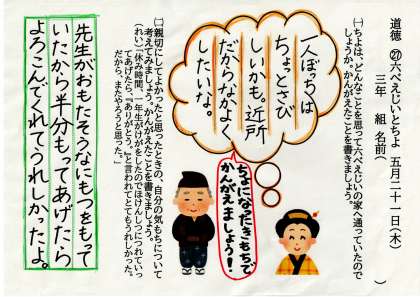 道徳 ㉗六べえじいとちよ 五月二十一日(木)
三年 組 名前( )
㈠ちよは、どんなことを思って六べえじいの家へ通っていたので
しょうか。かんがえたことを書きましょう。
一人ぼっちは
ちょっとさび
しいかも。近所
だからなかよく
したいな。
ちよになったきもちで
かんがえましょう!
㈡親切にしてよかったと思ったときの、自分の気もちについて
考えてみましょう。かんがえたことを書きましょう。
(れい)「休み時間、一年生がけがをしたのでほけんしつにつれていっ
てあげたら、『ありがとう。』と言われてとてもうれしかった。
だから、またやろうと思った。」
先生がおもたそうなにもつをもって
いたから半分もってあげたら
よろこんでくれてうれしかったよ。